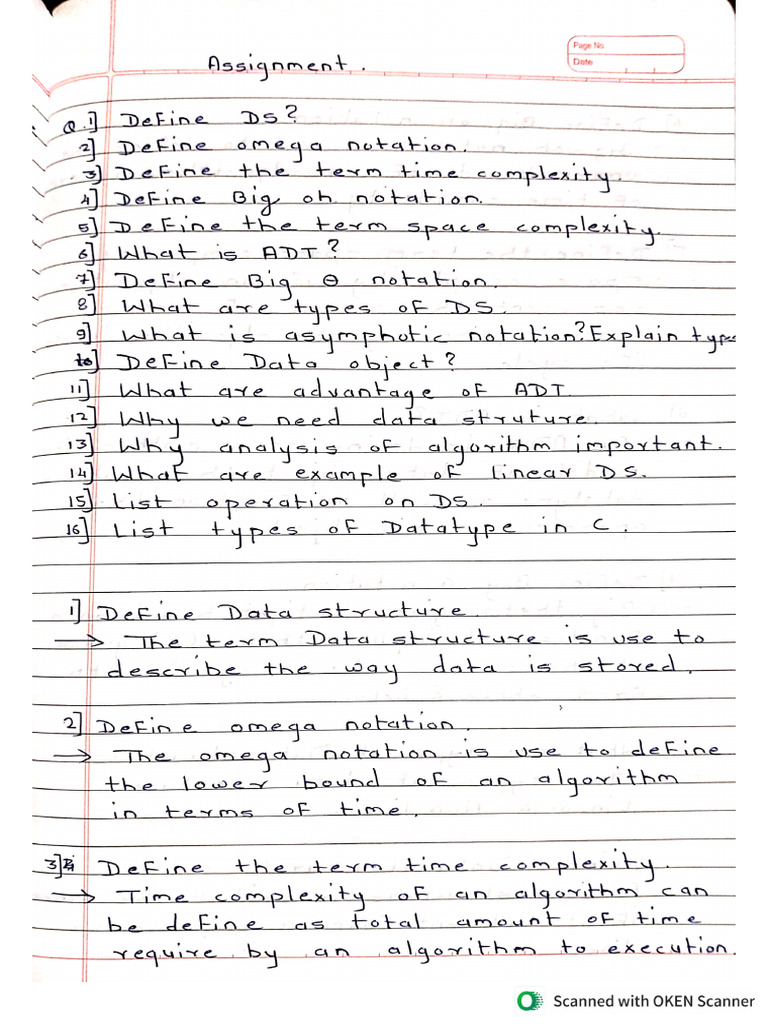 Assignment.
Page No
Date
Q.1] Define DS?
2] Define omega notation.
3] Define the term time complexity.
4] Define Big oh notation.
5] Define the term space complexity.
6] What is ADT?
7] Define Big Θ notation.
8] What are types of DS.
9] What is asymphotic notation? Explain type
10] Define Data object?
11] What are advantage of ADT
12] Why we need data struture.
13] Why analysis of algorithm important.
14] What are example of linear DS.
15] List operation on DS.
16] List types of Datatype in C.
1] Define Data structure.
→ The term Data structure is use to
describe the way data is stored.
2] Define omega notation.
→ The omega notation is use to define
the lower bound of an algorithm
in terms of time.
3] Define the term time complexity.
→ Time complexity of an algorithm can
be define as total amount of time
require by an algorithm to execution.
Scanned with OKEN Scanner